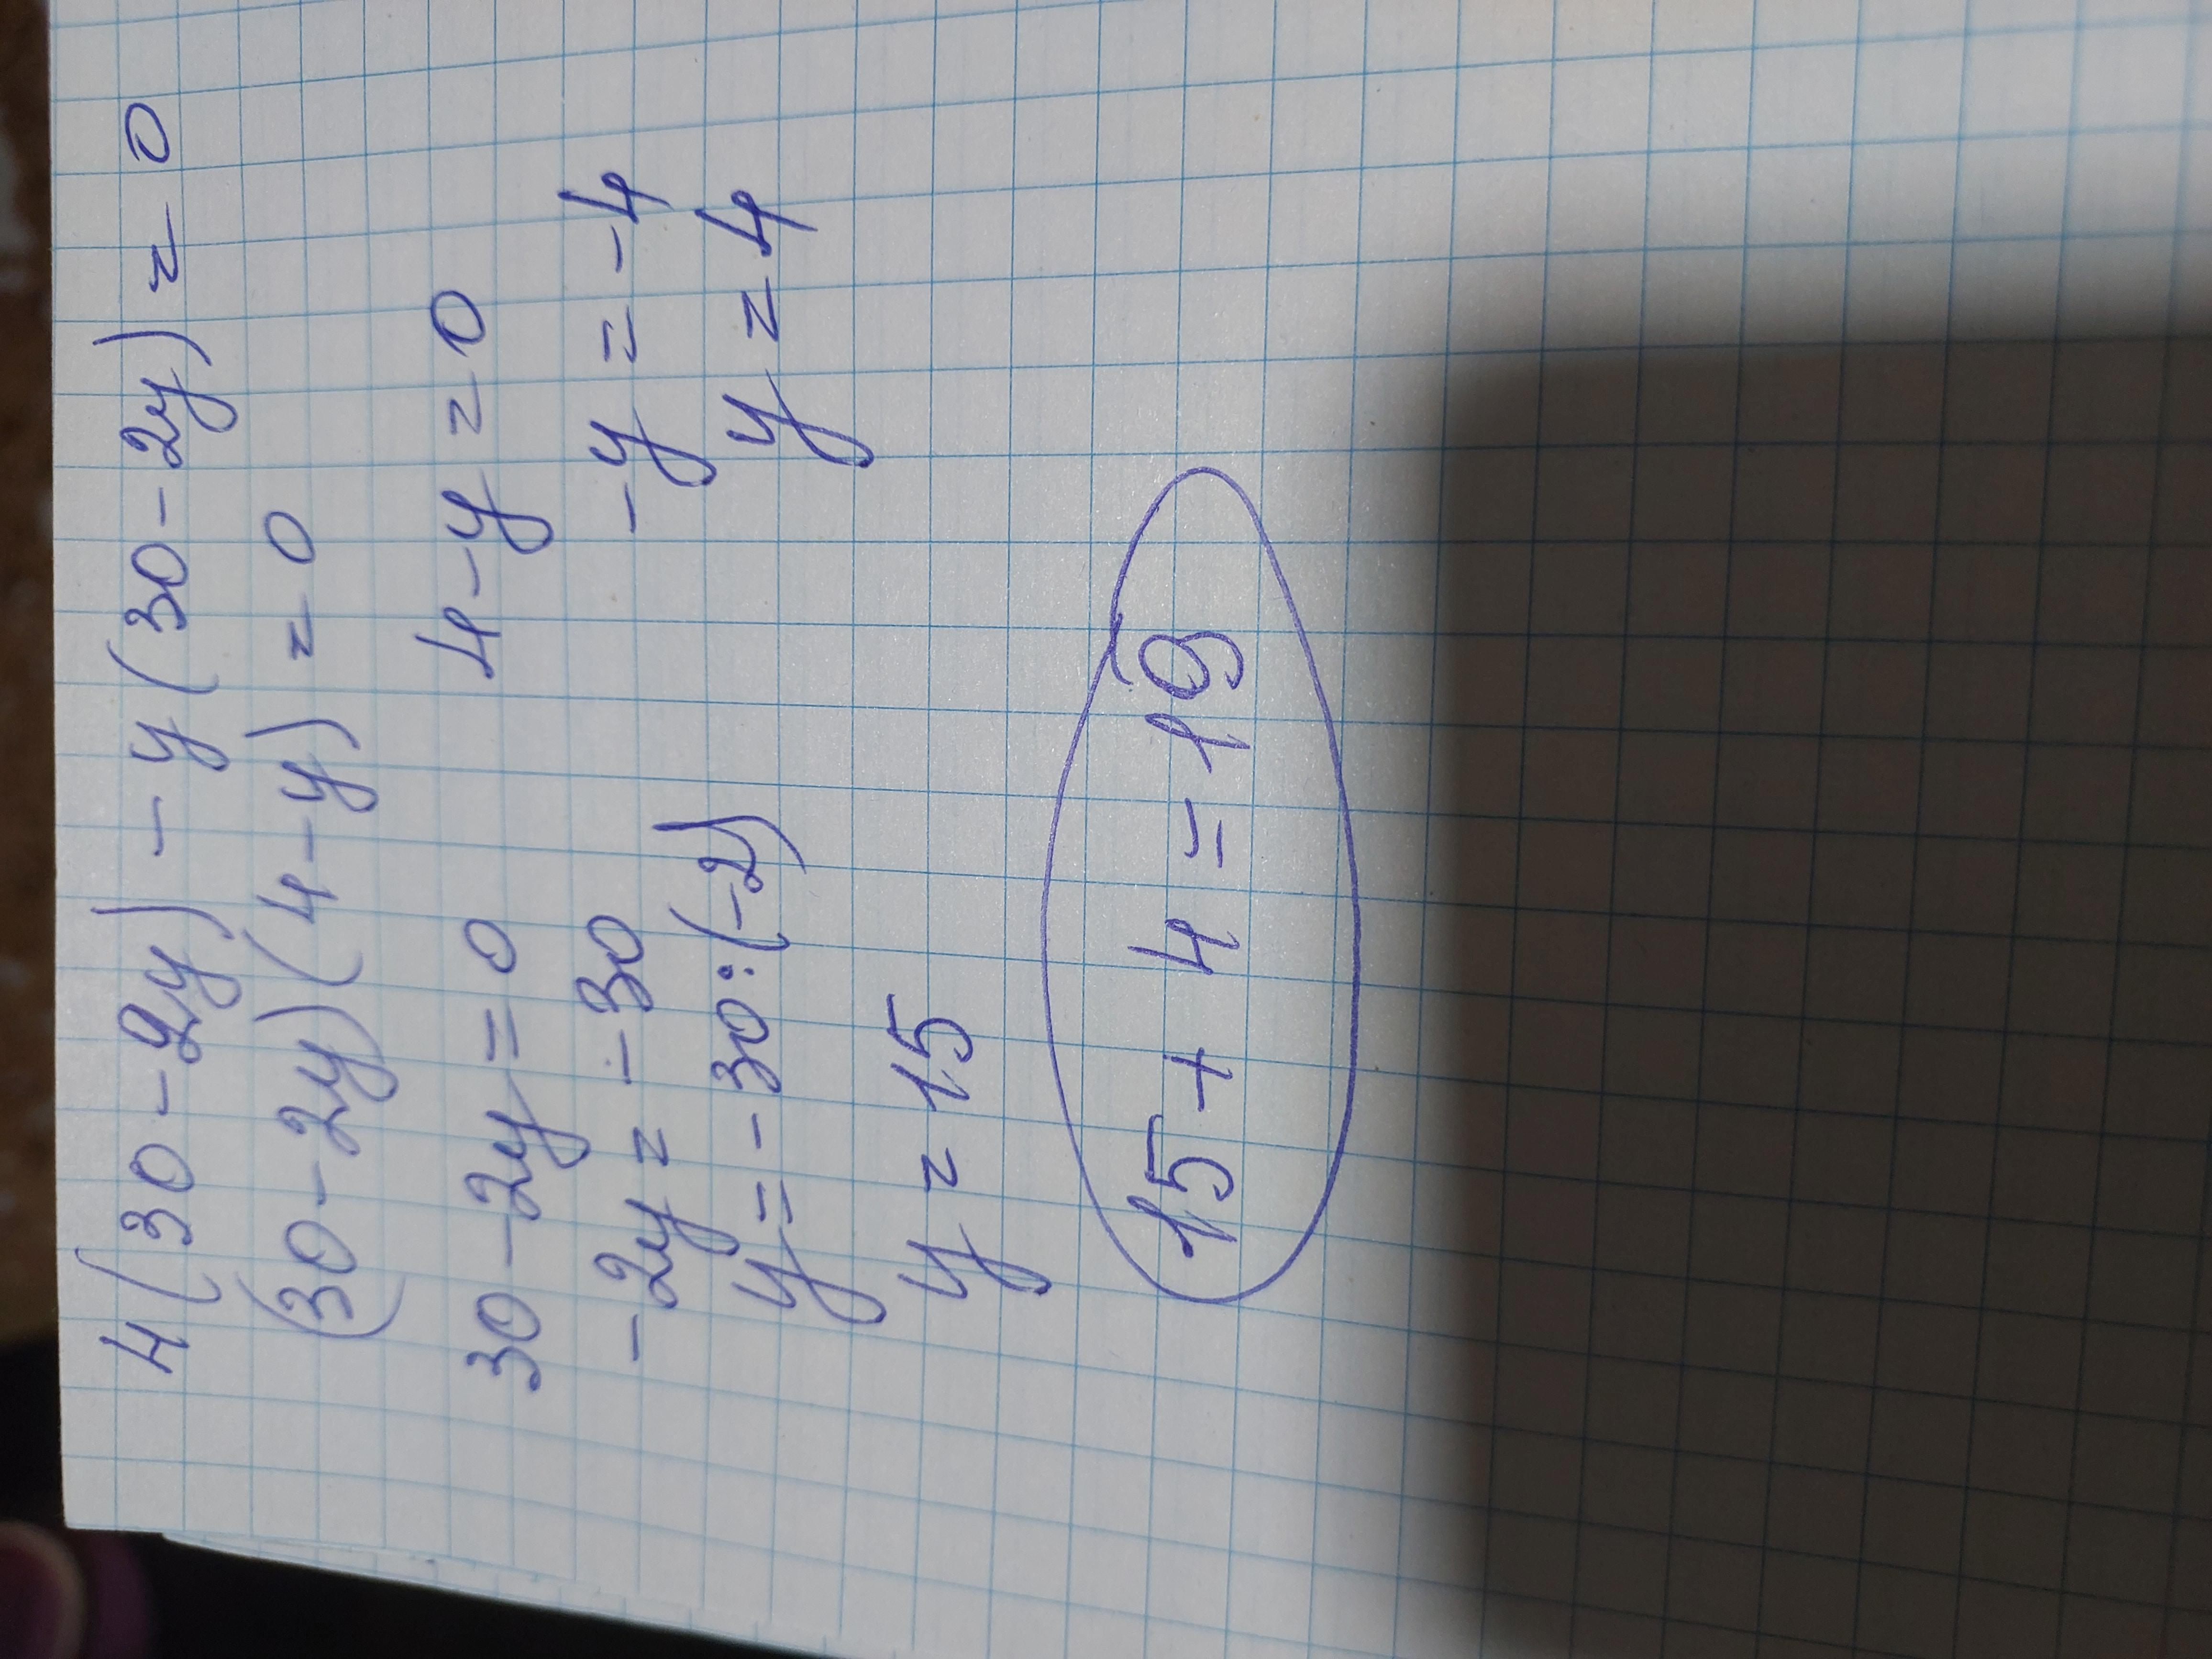 4(30-2y)-y(30-2y)=0
(30-2y)(4-y)=0
30-2y=0 4-y=0
-2y=-30 -y=-4
y=-30:(-2) y=4
y=15
15+4=19